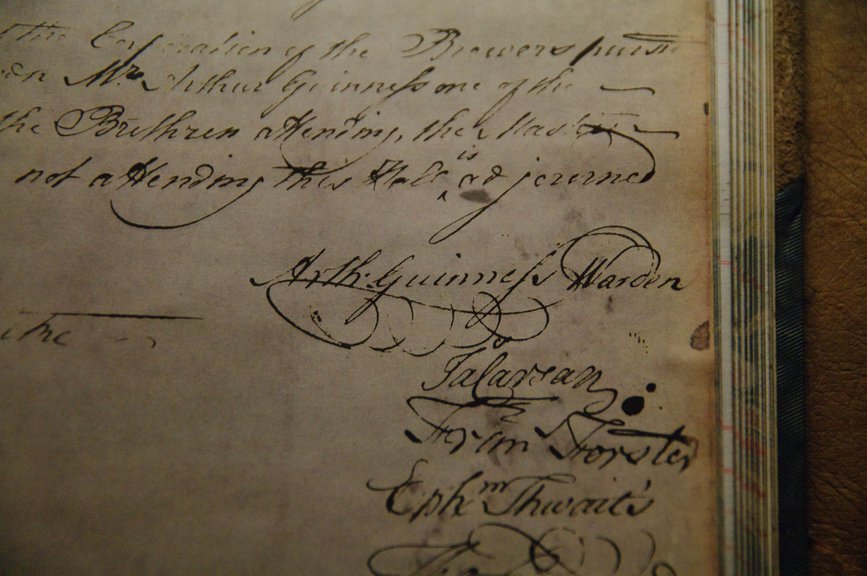 the Corporation of the Brewers pursu
Mr. Arthur Guinness one of the
the Brethren attending, the Master
not attending this Hall is adjourned
Arth. Guinness Warden
Ja Carean
Fran Forster
Ephm Thwaits